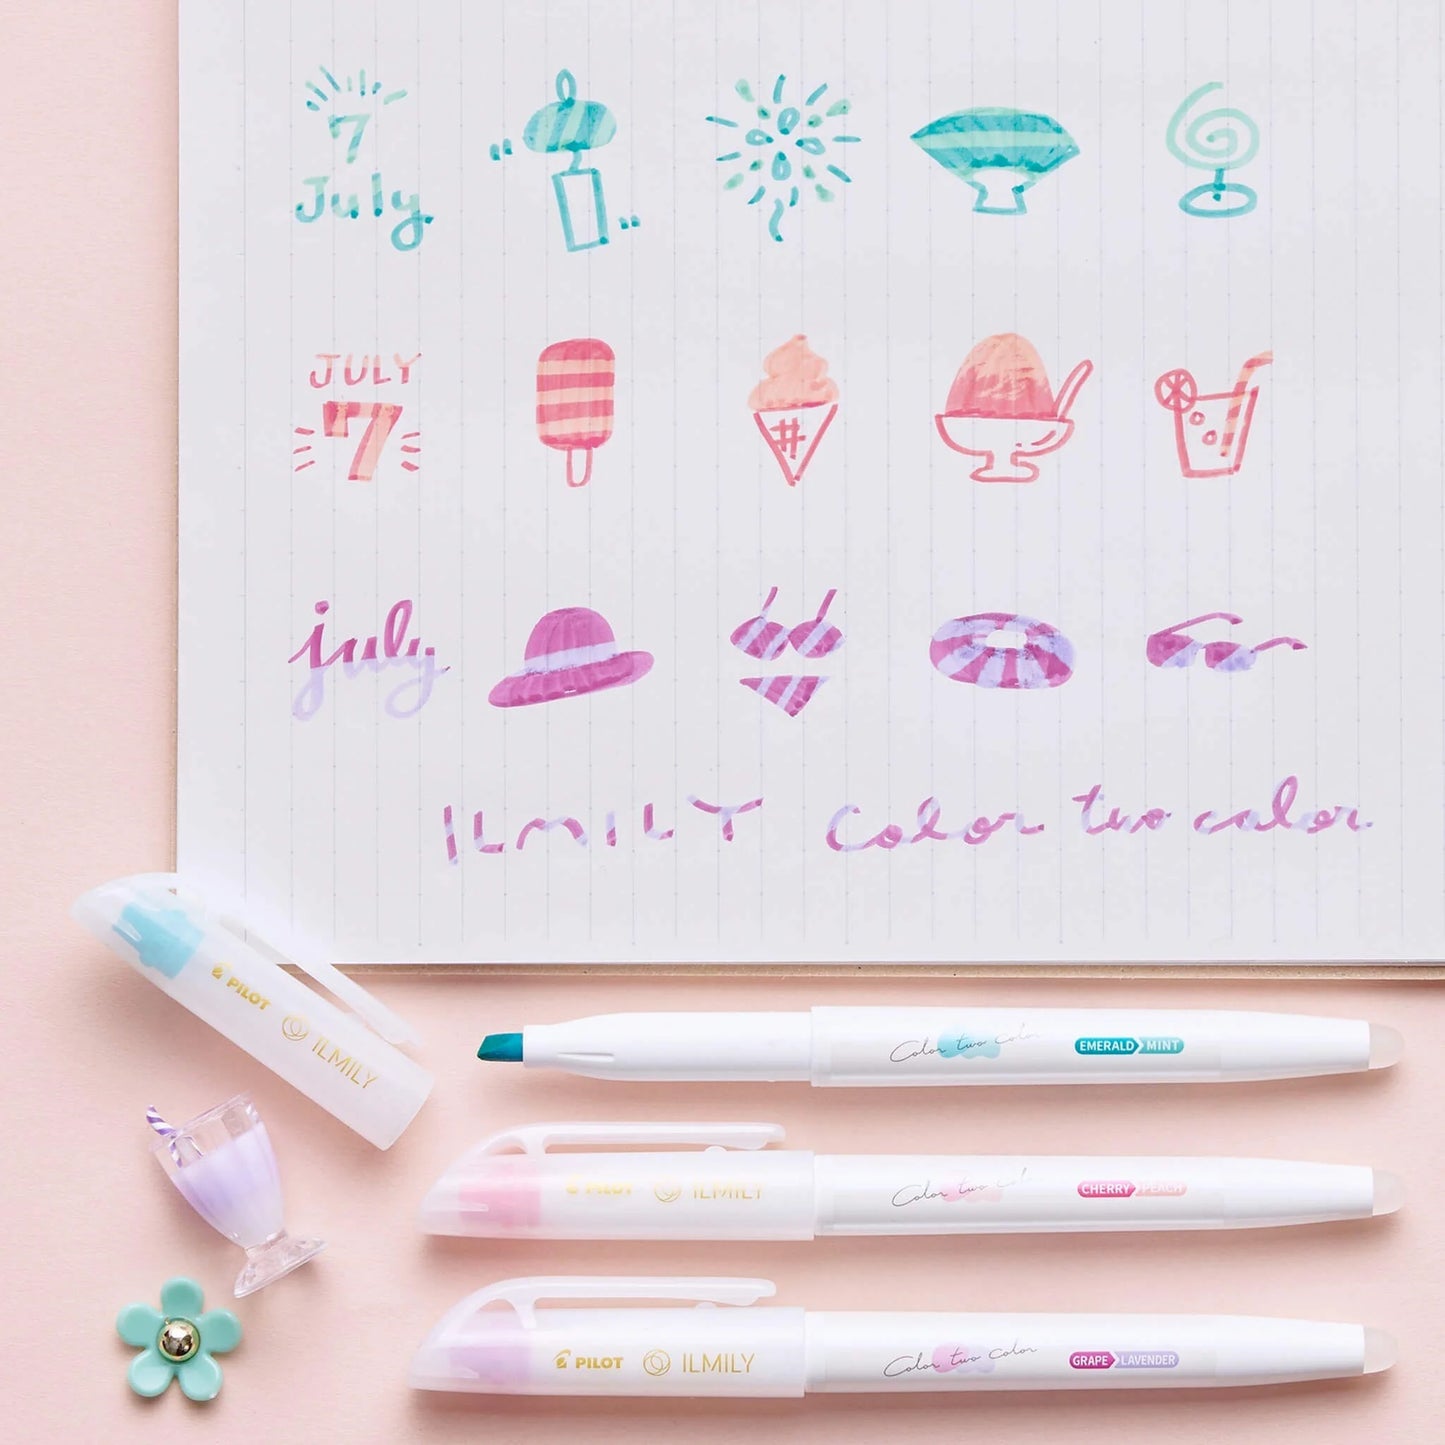 7
July
JULY
7
#
july
ILMILY Color two color
PILOT ILMILY
Color two color EMERALD MINT
PILOT ILMILY Color two color CHERRY PEACH
PILOT ILMILY Color two color GRAPE LAVENDER